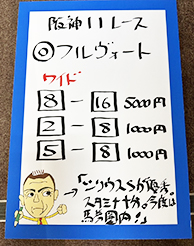 阪神11レース
◎フルヴォート
ワイド
8-16 5000円
2-8 1000円
5-8 1000円
「シリウスSが優秀。
スタミナ十分。今度は
馬券圏内!」